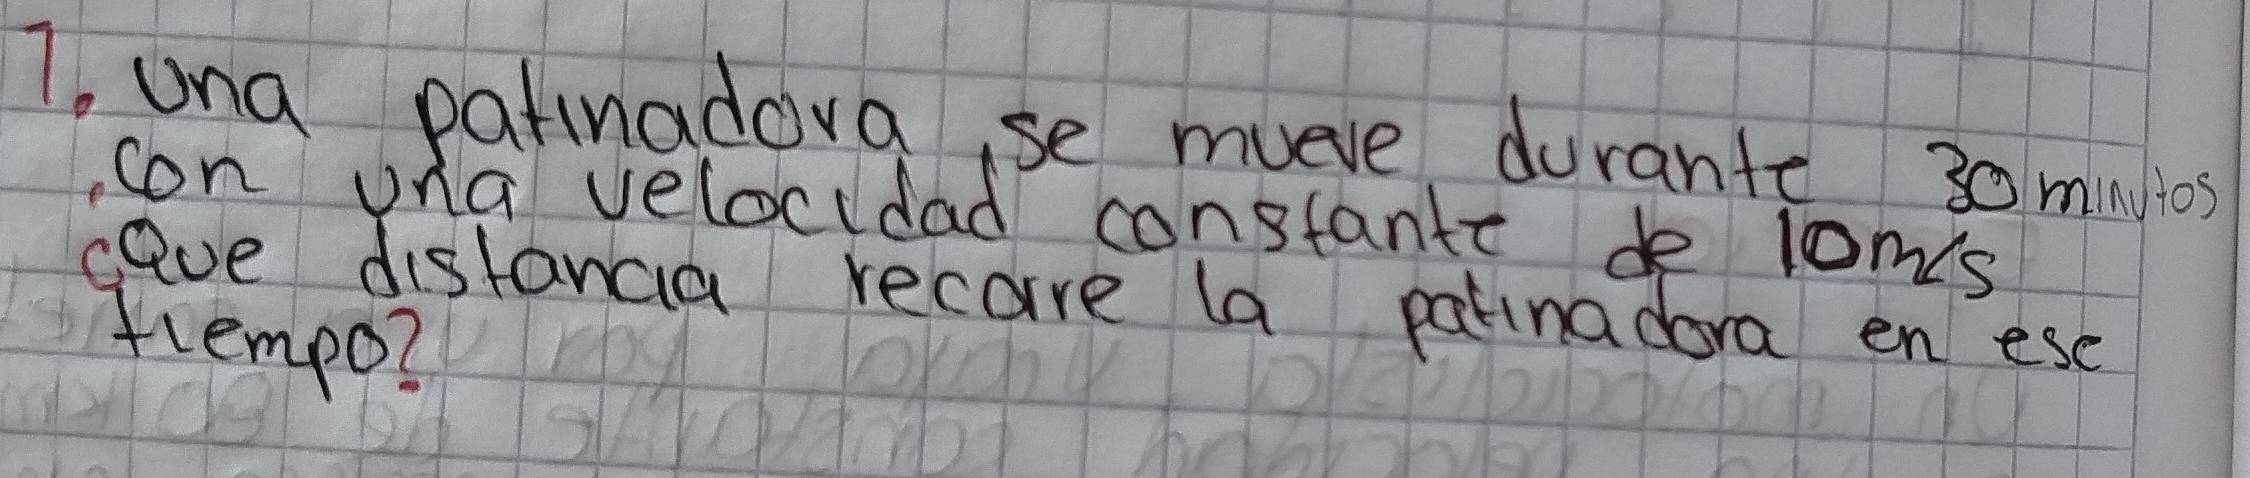 1. Una patinadora, se mueve durante 30 minutos
.con una velocidad constante de 10m/s
¿Que distancia recorre la patinadora en ese
tiempo?